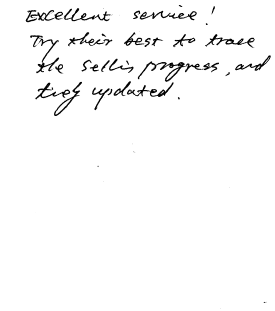 Excellent service!
Try their best to trace
the sellis progress, and
updated.